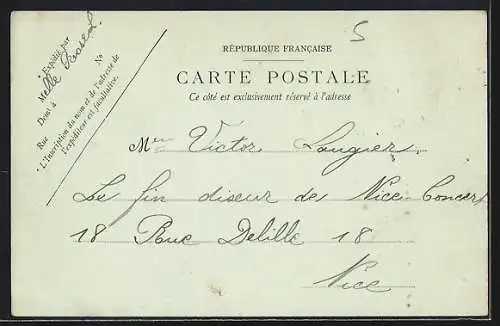 5
RÉPUBLIQUE FRANÇAISE
CARTE POSTALE
Ce côté est exclusivement réservé à l'adresse
* Expédié par
Melle
Demt à
Rue No
* L'inscription du nom et de l'adresse de
l'expéditeur est facultative.
Mr Victor Laugier.
Le fin diseur de Nice-Concert
18 Rue Delille 18
Nice